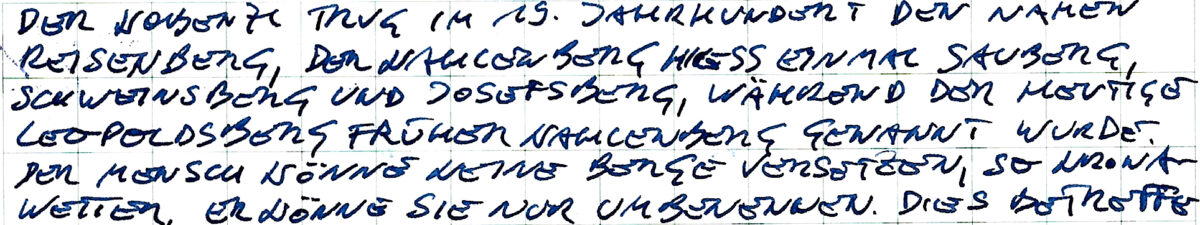 DER KOBENZL TRUG IM 19. JAHRHUNDERT DEN NAMEN
REISENBERG, DER KAHLENBERG HIESS EINMAL SAUBERG,
SCHWEINSBERG UND JOSEFSBERG, WÄHREND DER HEUTIGE
LEOPOLDSBERG FRÜHER KAHLENBERG GENANNT WURDE.
DER MENSCH KÖNNE KEINE BERGE VERSETZEN, SO KRONA-
WETTER. ER KÖNNE SIE NUR UMBENENNEN. DIES BETREFFE